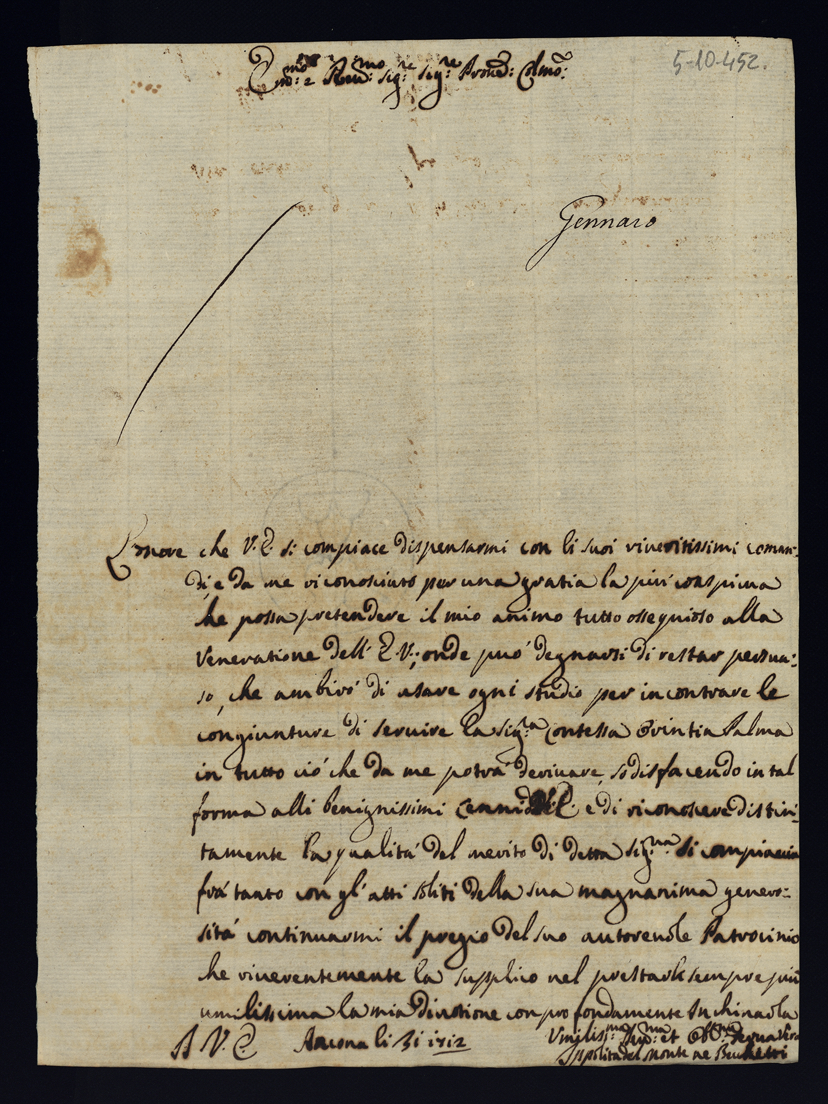 Em.mo e Rev.mo Sig.re Sig.re Prone Colmo:
5-10-452.
Gennaro
L'onore che V. E. si compiace dispensarmi con li suoi riveritissimi coman-
di, e da me riconosciuto per una gratia la più conspicua
che possa pretendere il mio animo tutto ossequioso alla
Veneratione dell' E. V.; onde può degnarsi di restar persua-
so, che ambirò di usare ogni studio per incontrare le
congiunture di servire la Sig.ra Contessa Orintia Palma
in tutto ciò che da me potrà derivare, sodisfacendo in tal
forma alli benignissimi Cenni e di riconoscere distin-
tamente la qualità del merito di detta Sig.ra si compiaccia
frà tanto con gl'atti soliti della sua magnanima genero-
sità continuarmi il pregio del suo autorevole Patrocinio
che riverentemente la supplico nel prestarle sempre più
umilissima la mia divotione con profondamente Inchinarla
A V. E. Ancona li 31 1712 Vmiliss.ma Dev.ma et Obb.ma Serva Vera
Ippolita del Monte ne Benchetri